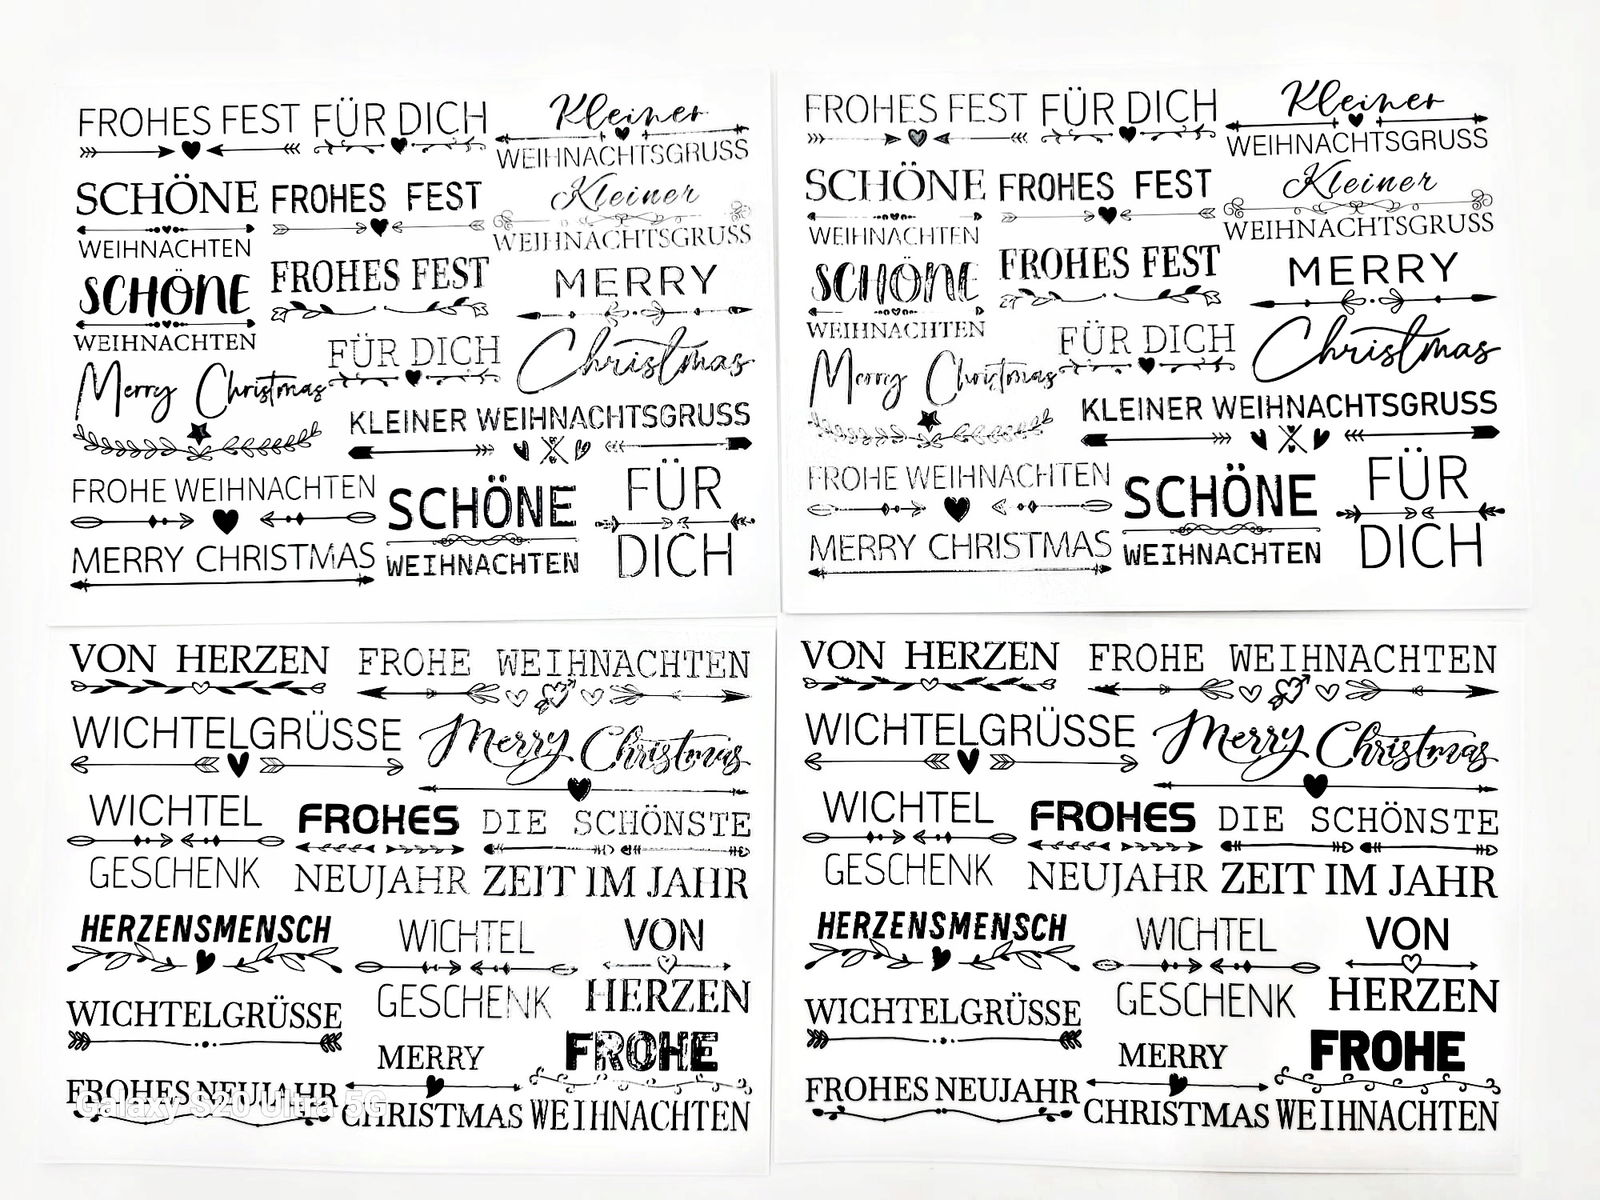 FROHES FEST
FÜR DICH
Kleiner
WEIHNACHTSGRUSS
SCHÖNE
WEIHNACHTEN
FROHES FEST
Kleiner
WEIHNACHTSGRUSS
SCHÖNE
WEIHNACHTEN
FROHES FEST
MERRY
Christmas
Merry Christmas
FÜR DICH
KLEINER WEIHNACHTSGRUSS
FROHE WEIHNACHTEN
MERRY CHRISTMAS
SCHÖNE
WEIHNACHTEN
FÜR
DICH
FROHES FEST
FÜR DICH
Kleiner
WEIHNACHTSGRUSS
SCHÖNE
WEIHNACHTEN
FROHES FEST
Kleiner
WEIHNACHTSGRUSS
SCHÖNE
WEIHNACHTEN
FROHES FEST
MERRY
Christmas
Merry Christmas
FÜR DICH
KLEINER WEIHNACHTSGRUSS
FROHE WEIHNACHTEN
MERRY CHRISTMAS
SCHÖNE
WEIHNACHTEN
FÜR
DICH
VON HERZEN
FROHE WEIHNACHTEN
WICHTELGRÜSSE
Merry Christmas
WICHTEL
GESCHENK
FROHES
NEUJAHR
DIE SCHÖNSTE
ZEIT IM JAHR
HERZENSMENSCH
WICHTEL
GESCHENK
VON
HERZEN
WICHTELGRÜSSE
MERRY
CHRISTMAS
FROHE
WEIHNACHTEN
FROHES NEUJAHR
Galaxy S20 Ultra 5G
VON HERZEN
FROHE WEIHNACHTEN
WICHTELGRÜSSE
Merry Christmas
WICHTEL
GESCHENK
FROHES
NEUJAHR
DIE SCHÖNSTE
ZEIT IM JAHR
HERZENSMENSCH
WICHTEL
GESCHENK
VON
HERZEN
WICHTELGRÜSSE
MERRY
CHRISTMAS
FROHE
WEIHNACHTEN
FROHES NEUJAHR